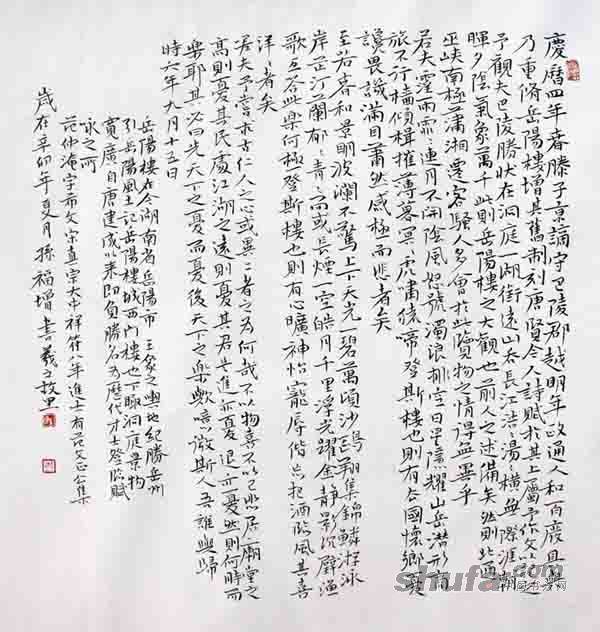 慶曆四年春滕子京謫守巴陵郡越明年政通人和百廢具興
乃重脩岳陽樓增其舊制刻唐賢今人詩賦於其上屬予作文以記之
予觀夫巴陵勝狀在洞庭一湖銜遠山吞長江浩浩湯湯橫無際涯朝
暉夕陰氣象萬千此則岳陽樓之大觀也前人之述備矣然則北通
巫峽南極瀟湘遷客騷人多會於此覽物之情得無異乎
若夫霪雨霏霏連月不開陰風怒號濁浪排空日星隱耀山岳潛形商
旅不行檣傾楫摧薄暮冥冥虎嘯猿啼登斯樓也則有去國懷鄉憂
讒畏譏滿目蕭然感極而悲者矣
至若春和景明波瀾不驚上下天光一碧萬頃沙鷗翔集錦鱗游泳
岸芷汀蘭郁郁青青而或長煙一空皓月千里浮光躍金靜影沉璧漁
歌互答此樂何極登斯樓也則有心曠神怡寵辱偕忘把酒臨風其喜
洋洋者矣
嗟夫予嘗求古仁人之心或異二者之為何哉不以物喜不以己悲居廟堂之
高則憂其民處江湖之遠則憂其君是進亦憂退亦憂然則何時而
樂耶其必曰先天下之憂而憂後天下之樂而樂歟噫微斯人吾誰與歸
時六年九月十五日
岳陽樓在今湖南省岳陽市王象之輿地紀勝岳州
引岳陽風土記岳陽樓城西門樓也下瞰洞庭景物
寬廣自唐建成以來即負勝名為歷代才士登臨賦
咏之所
范仲淹字希文宋真宗大中祥符八年進士有范文正公集
歲在辛卯年夏月孫福增書羲之故里
shufa.com